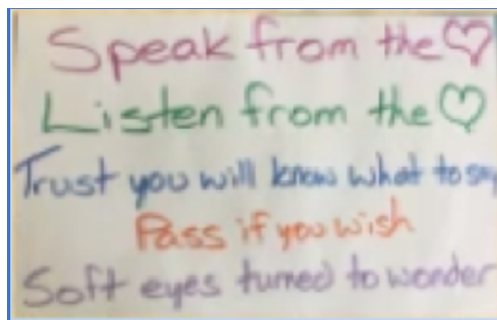 Speak from the ♡
Listen from the ♡
Trust you will know what to say
Pass if you wish
Soft eyes turned to wonder